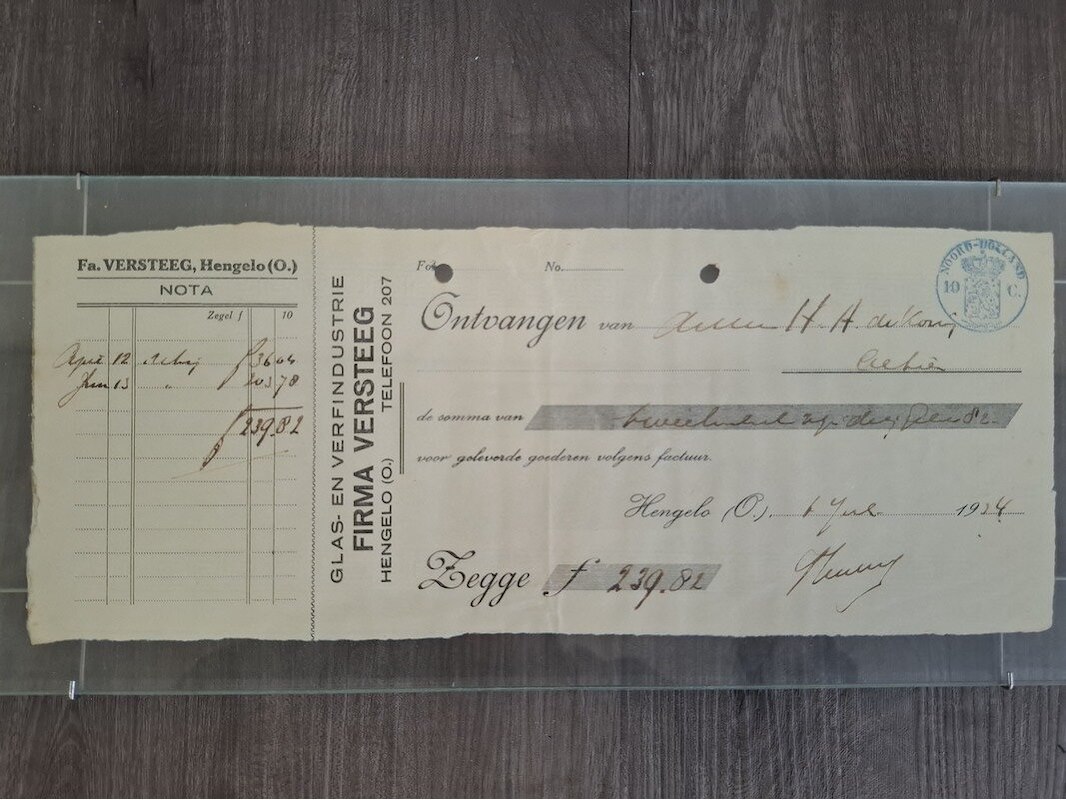 Fa. VERSTEEG, Hengelo (O.)
NOTA
Zegel f 10
April 12 f 36 04
Juni 13 " 203 78
f 239.82
GLAS- EN VERFINDUSTRIE
FIRMA VERSTEEG
HENGELO (O.) TELEFOON 207
No.
NOORD-HOLLAND
10 C.
Ontvangen van H. A. de Kong
de somma van 82
voor geleverde goederen volgens factuur.
Hengelo (O.), 1 Juli 1934
Zegge f 239.82